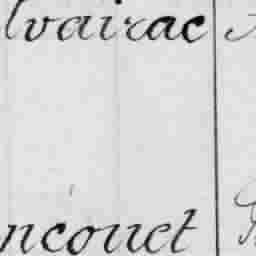 lvairac
ncouet